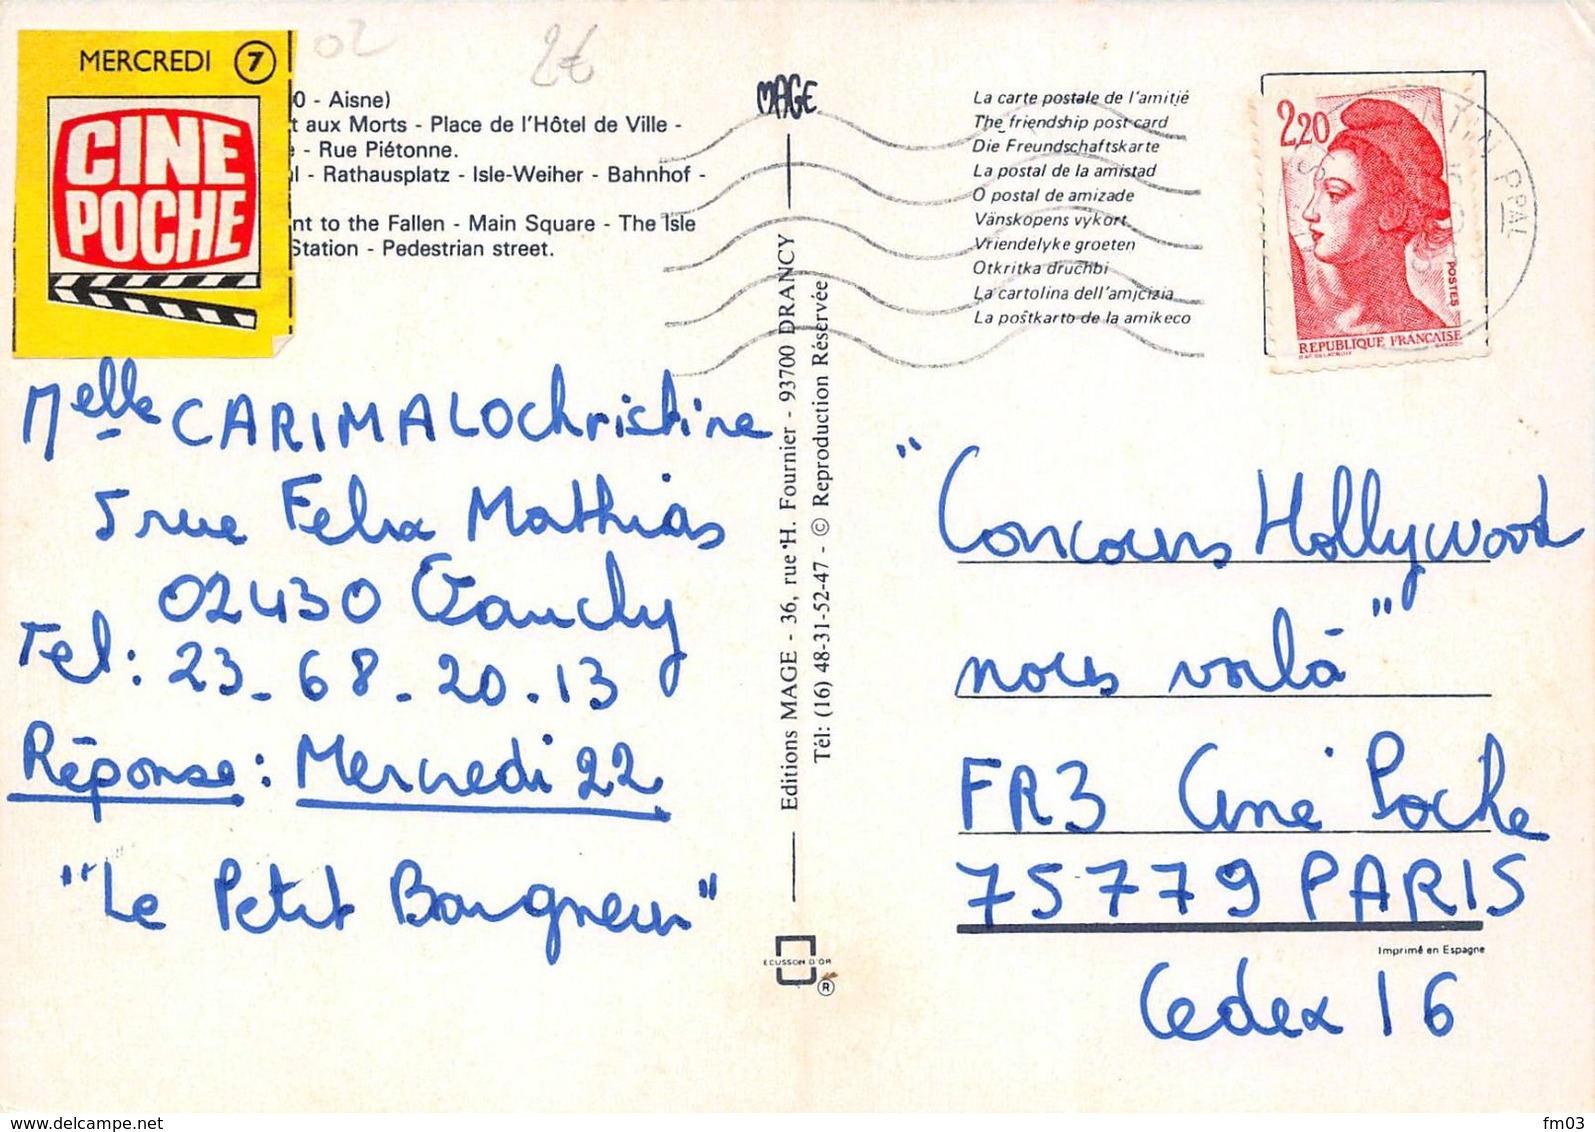 MERCREDI 7
CINE
POCHE
02
2€
0 - Aisne)
t aux Morts - Place de l'Hôtel de Ville -
e - Rue Piétonne.
l - Rathausplatz - Isle-Weiher - Bahnhof -
nt to the Fallen - Main Square - The Isle
Station - Pedestrian street.
Melle CARIMALO Christine
5 rue Felix Mathias
02430 Gauchy
Tel: 23-68-20-13
Réponse : Mercredi 22
"Le Petit Baigneur"
MAGE
Editions MAGE - 36, rue H. Fournier - 93700 DRANCY
Tél: (16) 48-31-52-47 - © Reproduction Réservée
ECUSSON D'OR
®
La carte postale de l'amitié
The friendship post card
Die Freundschaftskarte
La postal de la amistad
O postal de amizade
Vänskopens vykort
Vriendelyke groeten
Otkritka druchbi
La cartolina dell'amicizia
La poŝtkarto de la amikeco
2,20
POSTES
REPUBLIQUE FRANÇAISE
D'AP. DELACROIX GANDON
T'N PPAL
"Concours Hollywood
nous voilà"
FR3 Ciné Poche
75779 PARIS
Imprimé en Espagne
Cedex 16
www.delcampe.net
fm03